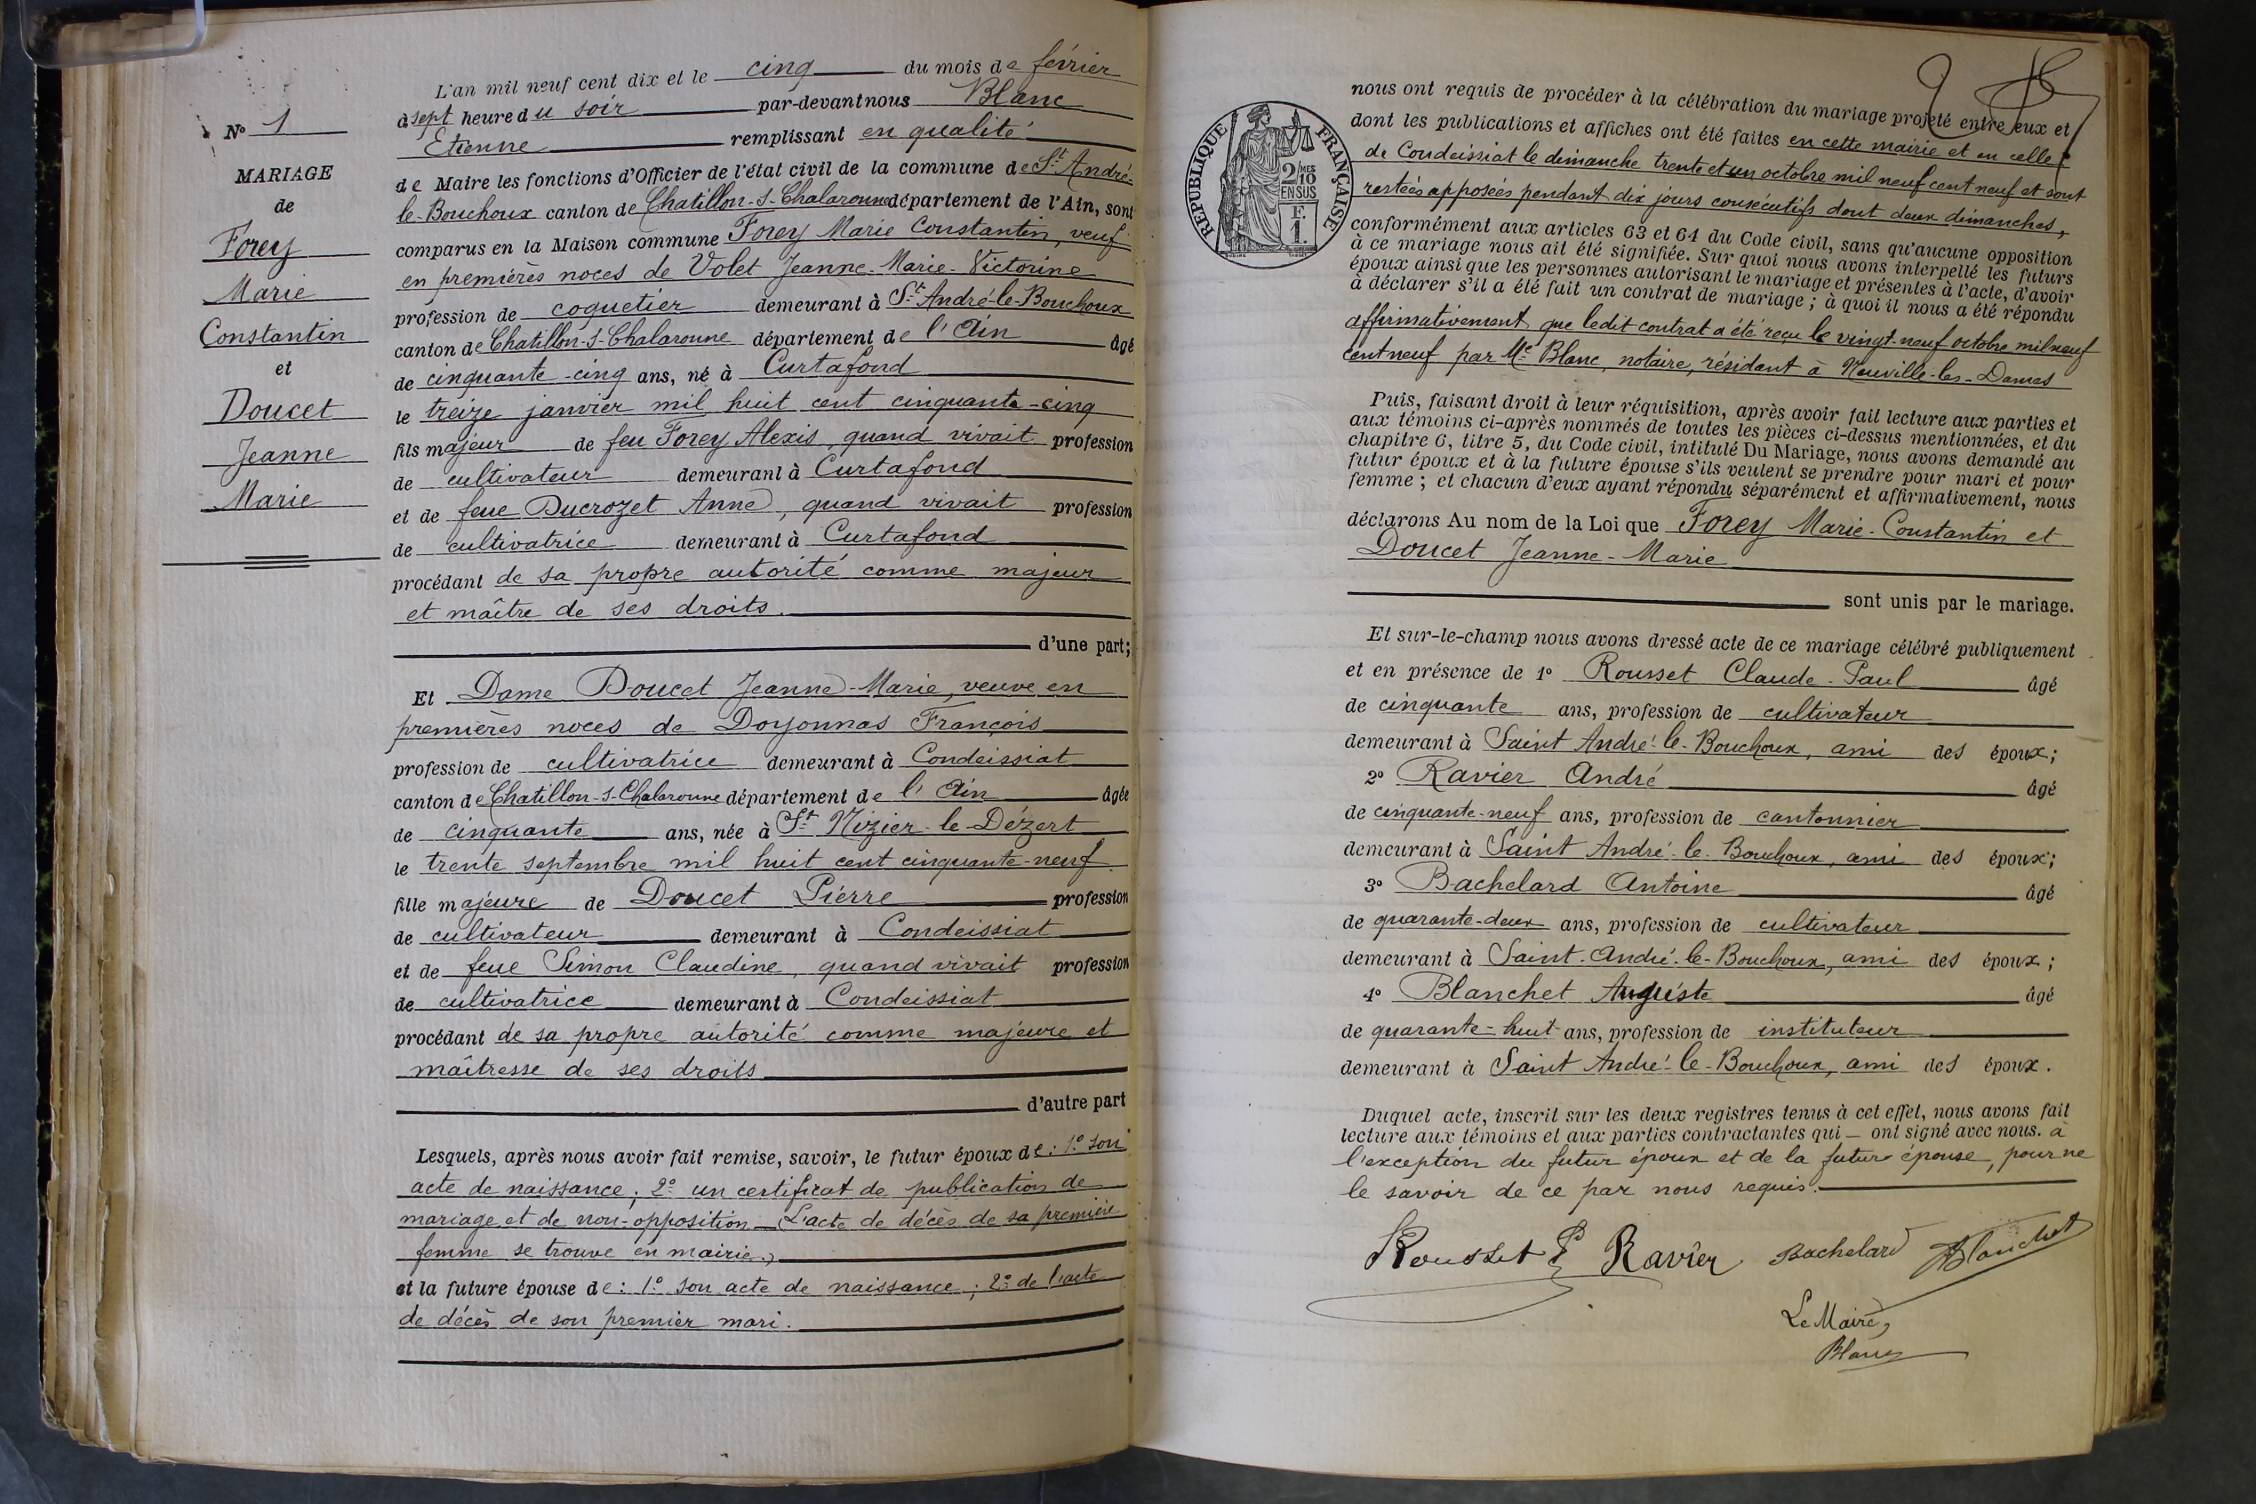 N° 1
MARIAGE
de
Forey
Marie
Constantin
et
Doucet
Jeanne
Marie
L'an mil neuf cent dix et le cinq du mois de février
à sept heure du soir par-devant nous Blanc
Etienne remplissant en qualité
de Maire les fonctions d'Officier de l'état civil de la commune de St André-
le-Bouchoux canton de Chatillon-s-Chalaronne département de l'Ain, sont
comparus en la Maison commune Forey Marie Constantin, veuf
en premières noces de Volet Jeanne-Marie-Victorine
profession de coquetier demeurant à St André-le-Bouchoux
canton de Chatillon-s-Chalaronne département de l'Ain âgé
de cinquante-cinq ans, né à Curtafond
le treize janvier mil huit cent cinquante-cinq
fils majeur de feu Forey Alexis, quand vivait profession
de cultivateur demeurant à Curtafond
et de feue Ducrozet Anne, quand vivait profession
de cultivatrice demeurant à Curtafond
procédant de sa propre autorité comme majeur
et maître de ses droits.
d'une part;
Et Dame Doucet Jeanne-Marie, veuve en
premières noces de Doyonnas François
profession de cultivatrice demeurant à Condeissiat
canton de Chatillon-s-Chalaronne département de l'Ain âgée
de cinquante ans, née à St Nizier-le-Dézert
le trente septembre mil huit cent cinquante-neuf
fille majeure de Doucet Pierre profession
de cultivateur demeurant à Condeissiat
et de feue Simon Claudine, quand vivait profession
de cultivatrice demeurant à Condeissiat
procédant de sa propre autorité comme majeure et
maîtresse de ses droits
d'autre part
Lesquels, après nous avoir fait remise, savoir, le futur époux de: 1° son
acte de naissance; 2° un certificat de publication de
mariage et de non-opposition — L'acte de décès de sa première
femme se trouve en mairie;
et la future épouse de: 1° son acte de naissance; 2° de l'acte
de décès de son premier mari.
RÉPUBLIQUE FRANÇAISE
2/10
MES
EN SUS
F.
1.
nous ont requis de procéder à la célébration du mariage projeté entre eux et
dont les publications et affiches ont été faites en cette mairie et en celle
de Condeissiat le dimanche trente et un octobre mil neuf cent neuf et sont
restées apposées pendant dix jours consécutifs dont deux dimanches,
conformément aux articles 63 et 64 du Code civil, sans qu'aucune opposition
à ce mariage nous ait été signifiée. Sur quoi nous avons interpellé les futurs
époux ainsi que les personnes autorisant le mariage et présentes à l'acte, d'avoir
à déclarer s'il a été fait un contrat de mariage; à quoi il nous a été répondu
affirmativement que ledit contrat a été reçu le vingt-neuf octobre mil neuf
cent neuf par Me Blanc, notaire, résidant à Neuville-les-Dames
Puis, faisant droit à leur réquisition, après avoir fait lecture aux parties et
aux témoins ci-après nommés de toutes les pièces ci-dessus mentionnées, et du
chapitre 6, titre 5, du Code civil, intitulé Du Mariage, nous avons demandé au
futur époux et à la future épouse s'ils veulent se prendre pour mari et pour
femme; et chacun d'eux ayant répondu séparément et affirmativement, nous
déclarons Au nom de la Loi que Forey Marie-Constantin et
Doucet Jeanne-Marie
sont unis par le mariage.
Et sur-le-champ nous avons dressé acte de ce mariage célébré publiquement
et en présence de 1° Rousset Claude-Paul âgé
de cinquante ans, profession de cultivateur
demeurant à Saint André-le-Bouchoux, ami des époux;
2° Ravier André âgé
de cinquante-neuf ans, profession de cantonnier
demeurant à Saint André-le-Bouchoux, ami des époux;
3° Bachelard Antoine âgé
de quarante-deux ans, profession de cultivateur
demeurant à Saint-André-le-Bouchoux, ami des époux;
4° Blanchet Auguste âgé
de quarante-huit ans, profession de instituteur
demeurant à Saint André-le-Bouchoux, ami des époux.
Duquel acte, inscrit sur les deux registres tenus à cet effet, nous avons fait
lecture aux témoins et aux parties contractantes qui — ont signé avec nous. à
l'exception du futur époux et de la future épouse, pour ne
le savoir de ce par nous requis.
Rousset P Ravier Bachelard Blanchet
Le Maire,
Blanc